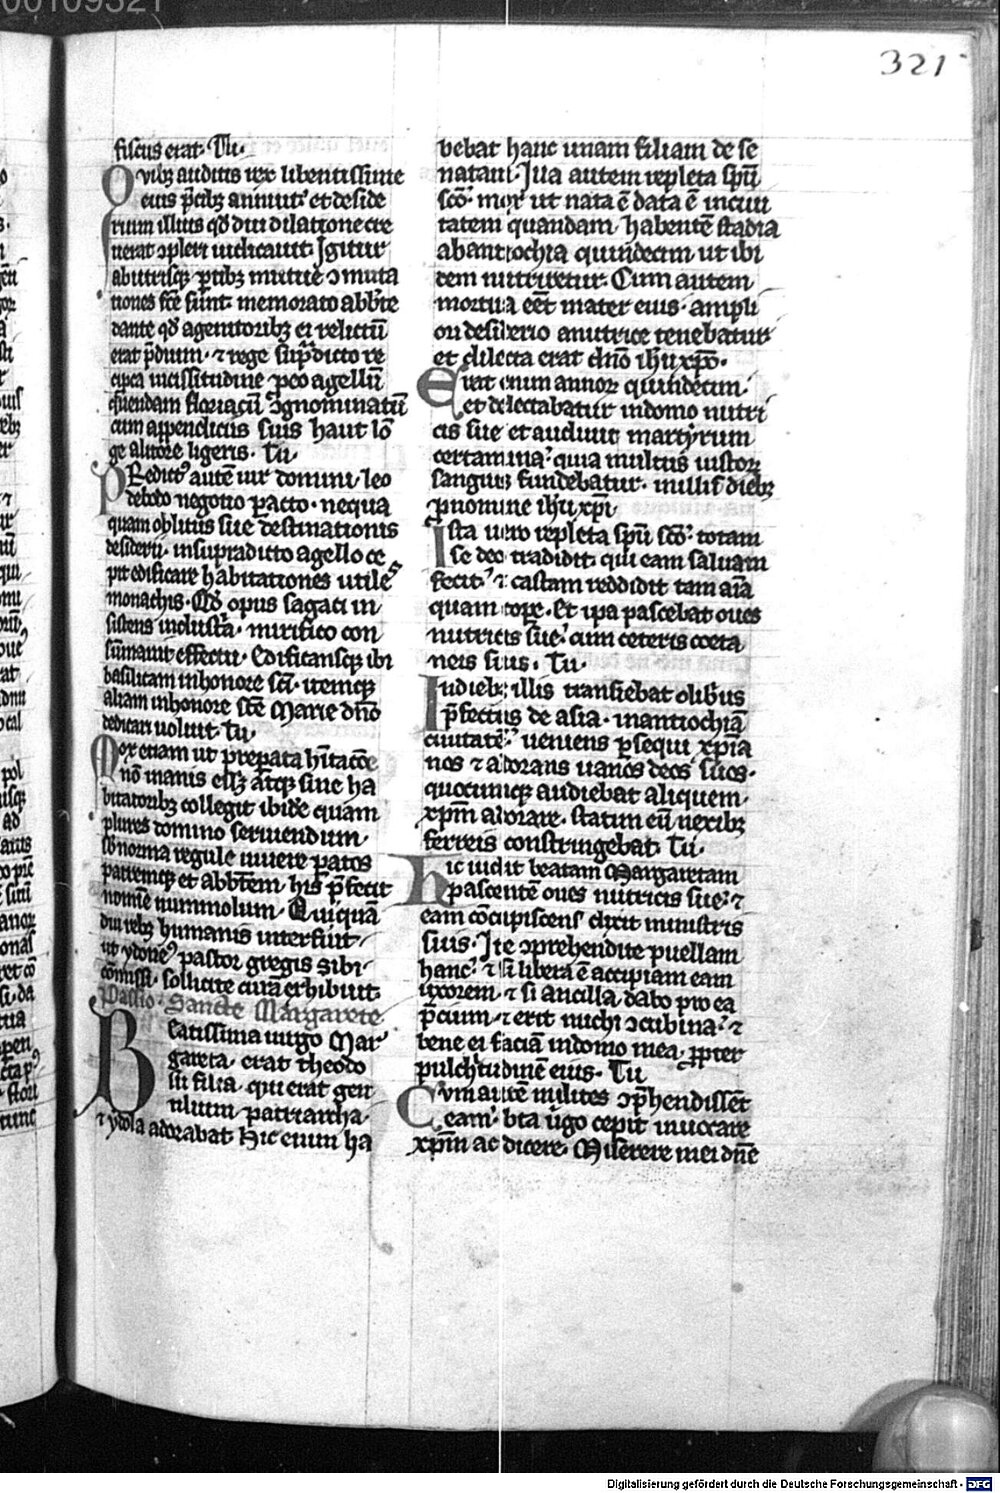 321
fiscus erat. Tu.
Ovibꝫ auditis rex libentissime
eius p̃cibꝫ annuit᷒ et deside
rium illius qđ diu dilatione cre
uerat ꝯpleri iudicauit. Igitur
ab utrisqꝫ ꝑtibꝫ mutue ꝯmuta
tiones fcẽ sunt memorato abbte
dante qđ a genitoribꝫ ei relictũ
erat p̃dium. ⁊ rege sup̃dicto re
cipca uicissitudine ꝓ eo agellũ
quendam floriacũ ꝯgnominatũ
cum appendiciis suis haut lõ
ge alueo ligeris. Tu.
PRedit᷒ autẽ uir domini leo
debodo negotio ꝑacto. nequa
quam oblitus sue destinationis
desiderii. in supradicto agello ce
pit edificare habitationes utiles
monachis. Qđ opus sagaci in
sistens industria. mirifico con
summauit effectu. Edificansqꝫ ibi
basilicam in honore sci. itemqꝫ
aliam in honore scẽ Marie dño
dedicari uoluit. Tu.
Mox etiam ut preparata hĩtacõe
nõ inanis esset atqꝫ sine ha
bitatoribꝫ collegit ibidẽ quam
plures domino seruiendum
sb norma regule uiuere paratos
patremqꝫ et abbtem his p̃fecit
nomine mummolum. Quiquã
diu rebꝫ humanis interfuit
ut ydone᷒ pastor gregis sibi
cõmissi. sollicite curã exhibuit.
Passio Sancte Margarete
Beatissima uirgo Mar
gareta. erat theodo
sii filia. qui erat gen
tilium patriarcha.
⁊ ydola adorabat Hic enim ha
bebat hanc unam filiam de se
natam. Ista autem repleta sp̃u
scõ. mox ut nata ẽ data ẽ in ciui
tatem quandam habentẽ stadia
ab antiochia quindecim ut ibi
dem nutriretur. Cum autem
mortua eẽt mater eius. ampli
ori desiderio a nutrice tenebatur
et dilecta erat dño ih̃u xp̃o.
Erat enim annoꝝ quindecim
et delectabatur in domo nutri
cis sue et audiuit martyrum
certamina. quia multus iustoꝝ
sanguis fundebatur. in illis diebꝫ
ꝓ nomine ih̃u xp̃i.
Ista uero repleta sp̃u scõ. totam
se deo tradidit. qui eam saluam
fecit. ⁊ castam reddidit tam aĩa
quam corpe. Et ipa pascebat oues
nutricis sue. cum ceteris coeta
neis suis. Tu.
In diebꝫ illis transiebat olibrius
p̃fectus de asia. in antiochiã
ciuitatẽ. ueniens ꝑsequi xp̃ia
nos ⁊ adorans uanos deos suos.
quocumqꝫ audiebat aliquem
xp̃m adorare. statim eũ nexibꝫ
ferreis constringebat. Tu.
Hic uidit beatam Margaretam
pascentẽ oues nutricis sue. ⁊
eam cõcupiscens dixit ministris
suis. Ite ꝯprehendite puellam
hanc. ⁊ si libera ẽ accipiam eam
uxorem. ⁊ si ancilla. dabo pro ea
p̃cium. ⁊ erit michi ꝯcubina. ⁊
bene ei faciã in domo mea. ꝓpter
pulchtudinẽ eius. Tu.
Cum autẽ milites ꝯp̃hendissẽt
eam. bta ũgo cepit inuocare
xp̃m ac dicere. Miserere mei dñe
Digitalisierung gefördert durch die Deutsche Forschungsgemeinschaft - DFG